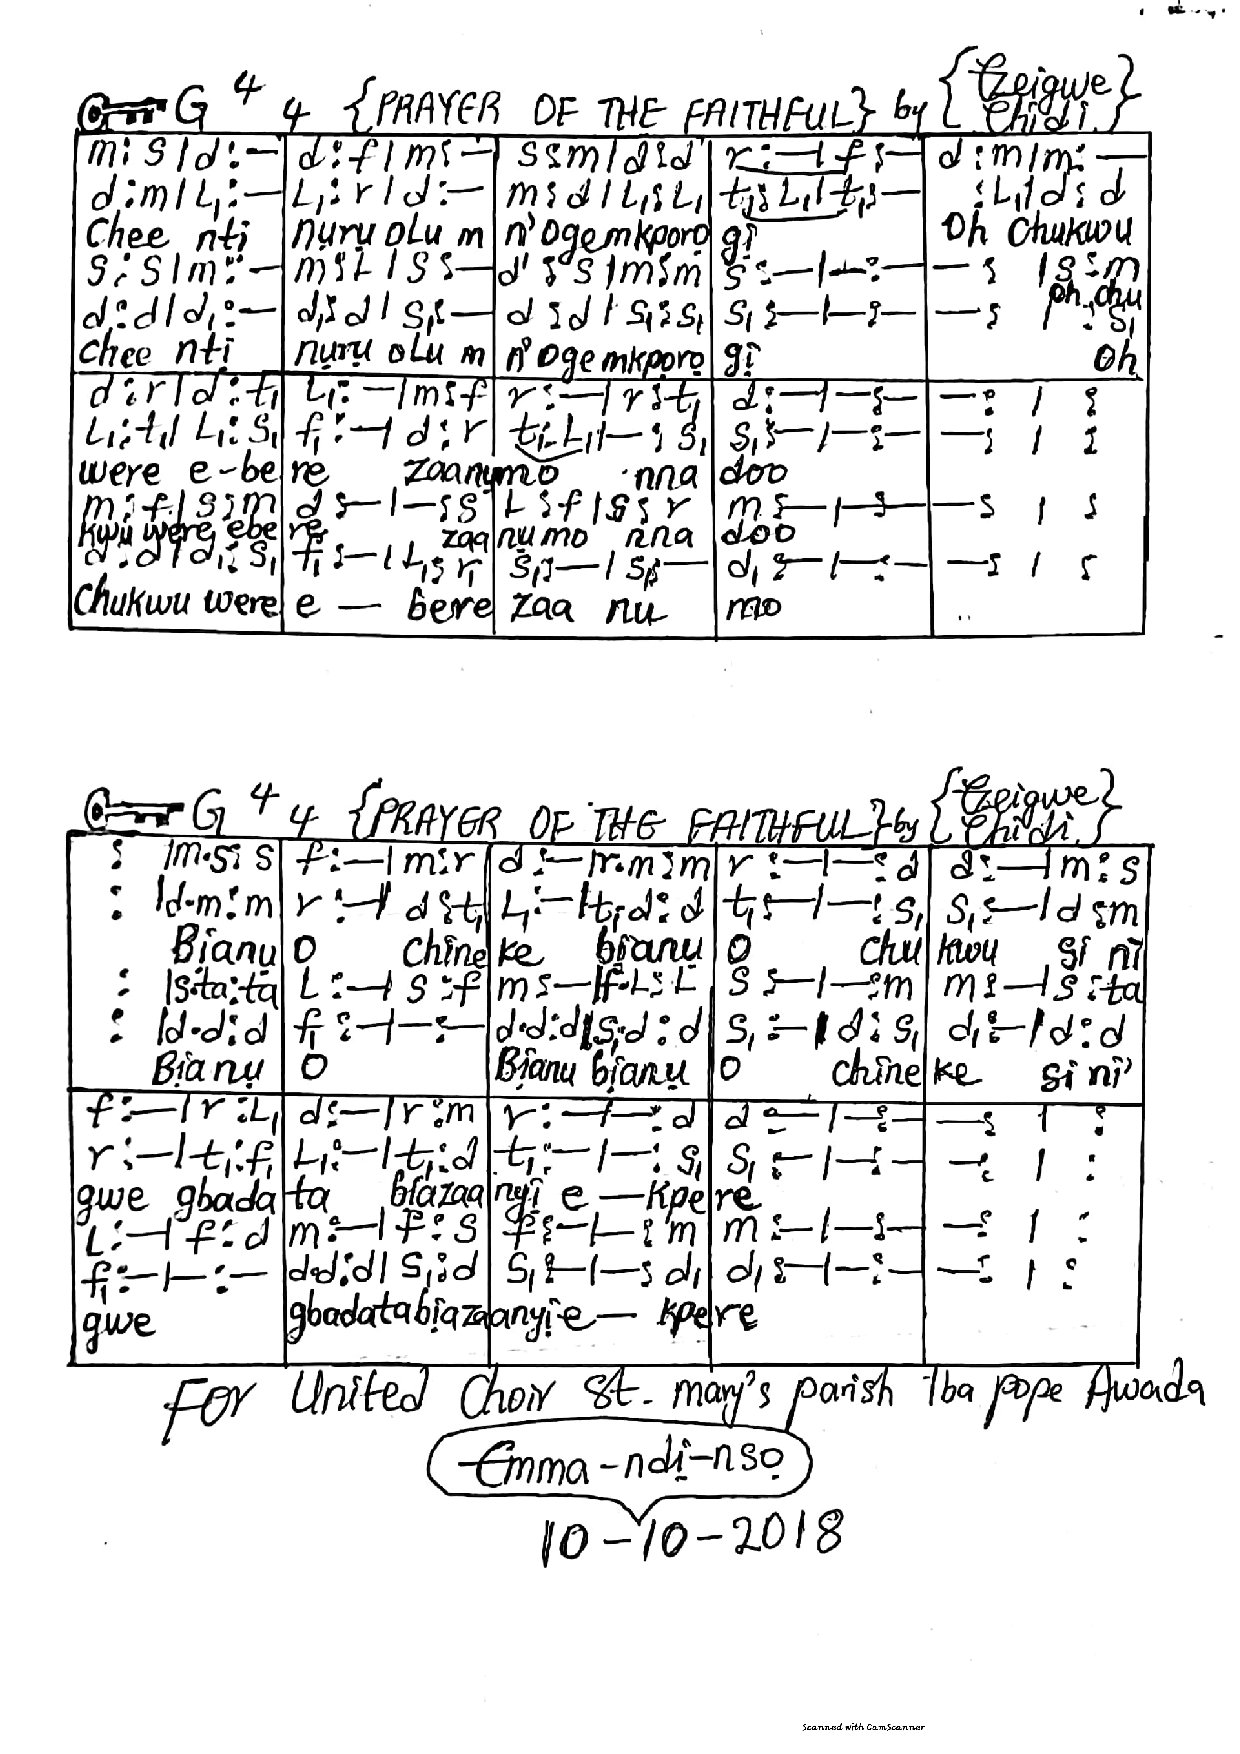 G 4 4 {PRAYER OF THE FAITHFUL} by {Ezeigwe Chidi}
m: s | d: — d: f | m: — s: m | d: d r: — | f: — d: m | m: —
d: m | L₁: — L₁: r | d: — m: d | L₁: L₁ t₁: L₁ | t₁: — : L₁ | d: d
Chee ntị nụrụ olu m n' oge mkpọrọ gị Oh Chukwu
s: s | m: — m: L | s: — d': s | m: m s: — | — : — — : | s: m
oh chu
d₁: d | d₁: — d₁: d | s₁: — d: d | s₁: s₁ s₁: — | — : — — : | : s₁
chee ntị nụrụ olu m n' oge mkpọrọ gị Oh
d: r | d: t₁ L₁: — | m: f r: — | r: t₁ d: — | — : — — : | :
L₁: t₁ | L₁: s₁ f₁: — | d: r t₁: L₁ | — : s₁ s₁: — | — : — — : | :
were e-be re zaanụmọ nna doo
m: f | s: m d: — | — : s L: f | s: r m: — | — : — — : | :
kwu were ebe re zaa nụmọ nna doo
d: d | d₁: s₁ f₁: — | L₁: r₁ s₁: — | s₁: — d₁: — | — : — — : | :
Chukwu were e — bere zaa nụ mọ
G 4 4 {PRAYER OF THE FAITHFUL} by {Ezeigwe Chidi}
: | m.s: s f: — | m: r d: — | r.m: m r: — | — : d d: — | m: s
: | d.m: m r: — | d: t₁ L₁: — | t₁.d: d t₁: — | — : s₁ s₁: — | d: m
Bịanụ O Chineke bịanụ O chukwu si n'
: | s.ta: ta L: — | s: f m: — | f.L: L s: — | — : m m: — | s: ta
: | d.d: d f₁: — | — : — d.d: d | s₁.d: d s₁: — | d: s₁ d₁: — | d: d
Bịanụ O Bịanụ bịanụ O chineke si n'
f: — | r: L₁ d: — | r: m r: — | — : d d: — | — : — — : | :
r: — | t₁: f₁ L₁: — | t₁: d t₁: — | — : s₁ s₁: — | — : — — : | :
gwe gbadata bịazaanyị e — kpere
L: — | f: d m: — | f: s f: — | — : m m: — | — : — — : | :
f₁: — | — : — d.d: d | s₁: d s₁: — | — : d₁ d₁: — | — : — — : | :
gwe gbadatabịazaanyị e — kpere
For United Choir St. mary's parish Iba pope Awada
Emma-ndị-nsọ
10-10-2018
Scanned with CamScanner